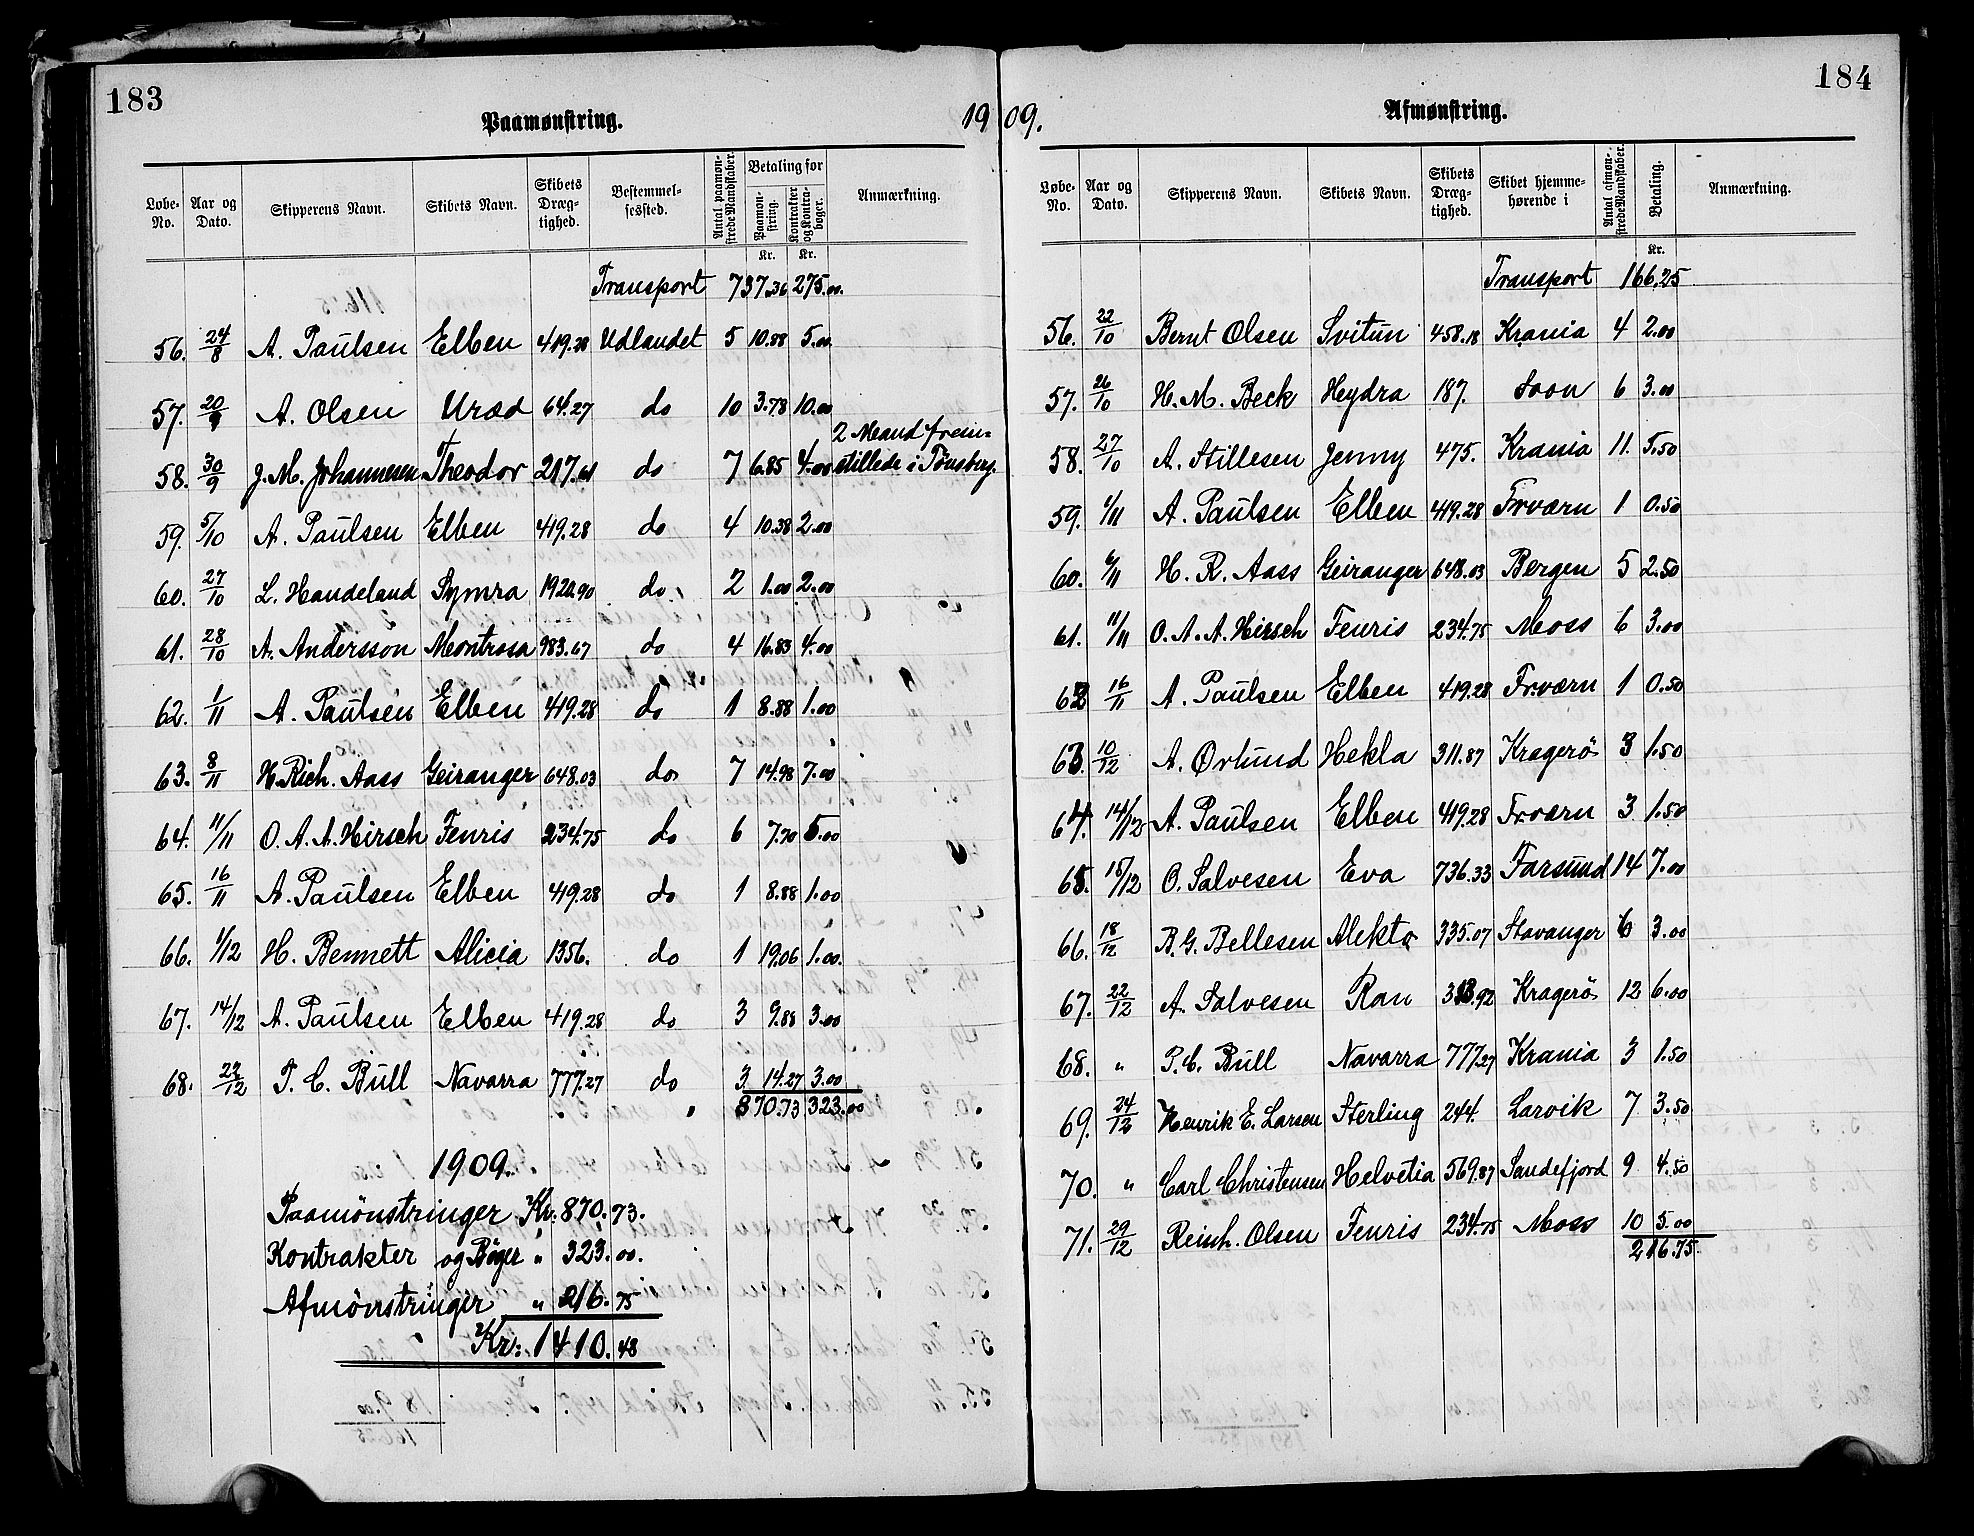 183
Paamønstring.
19
Løbe-No. Aar og Dato. Skipperens Navn. Skibets Navn. Skibets Dræg-tighed. Bestemmel-sessted. Antal paamøn-strede Mandskaber. Betaling for Paamøn-string. Kontrakter og Kontra-bøger. Anmærkning.
Kr. Kr.
Transport 737.36 275.00.
56. 24/8 A. Paulsen Elben 419.28 Udlandet 5 10.88 5.00
57. 20/9 A. Olsen Uræd 64.27 do 10 3.78 10.00
2 Mand frem=
58. 30/9 J. M. Johannesen Theodor 217.61 do 7 6.85 4.00 stillede i Tønsberg.
59. 5/10 A. Paulsen Elben 419.28 do 4 10.38 2.00
60. 27/10 L. Handeland Symra 1920.90 do 2 1.00 2.00
61. 28/10 A. Andersson Montrosa 983.67 do 4 16.83 4.00
62. 1/11 A. Paulsen Elben 419.28 do 1 8.88 1.00
63. 8/11 H. Rich. Aass Geiranger 648.03 do 7 14.98 7.00
64. 11/11 O. A. A. Hirsch Fenris 234.75 do 6 7.70 5.00
65. 16/11 A. Paulsen Elben 419.28 do 1 8.88 1.00
66. 1/12 H. Bennett Alicia 1356. do 1 19.06 1.00.
67. 14/12 A. Paulsen Elben 419.28 do 3 9.88 3.00
68. 22/12 T. C. Bull Navarra 777.27 do 3 14.27 3.00
870.73 323.00
1909.
Paamönstringer Kr: 870.73.
Kontrakter og Böger " 323.00.
Afmönstringer " 216.75
Kr: 1410.48
184
Afmønstring.
09.
Løbe-No. Aar og Dato. Skipperens Navn. Skibets Navn. Skibets Dræg-tighed. Skibet hjemme-hørende i Antal afmøn-strede Mandskaber. Betaling. Anmærkning.
Kr.
Transport 166.25
56. 22/10 Bernt Olsen Svitun 458.18 Krania 4 2.00
57. 26/10 H. M. Beck Heydra 187. Soon 6 3.00
58. 27/10 A. Stillesen Jenny 475. Krania 11. 5.50
59. 1/11 A. Paulsen Elben 419.28 Frværn 1 0.50
60. 6/11 H. R. Aass Geiranger 648.03 Bergen 5 2.50
61. 11/11 O. A. A. Hirsch Fenris 234.75 Moss 6 3.00
62 16/11 A. Paulsen Elben 419.28 Frværn 1 0.50
63. 10/12 A. Ørlund Hekla 311.87 Kragerö 3 1.50
64. 14/12 A. Paulsen Elben 419.28 Frværn 3 1.50
65. 15/12 O. Salvesen Eva 736.33 Farsund 14 7.00
66. 18/12 B. G. Bellesen Alekto 335.07 Stavanger 6 3.00
67. 22/12 A. Salvesen Ran Kragerö 12 6.00
68. " T. C. Bull Navarra 777.27 Krania 3 1.50
69. 24/12 Henrik E. Larsen Sterling 244. Larvik 7 3.50
70. " Carl Christensen Helvetia 569.87 Sandefjord 9 4.50
71. 29/12 Reinh. Olsen Fenris 234.75 Moss 10 5.00
216.75